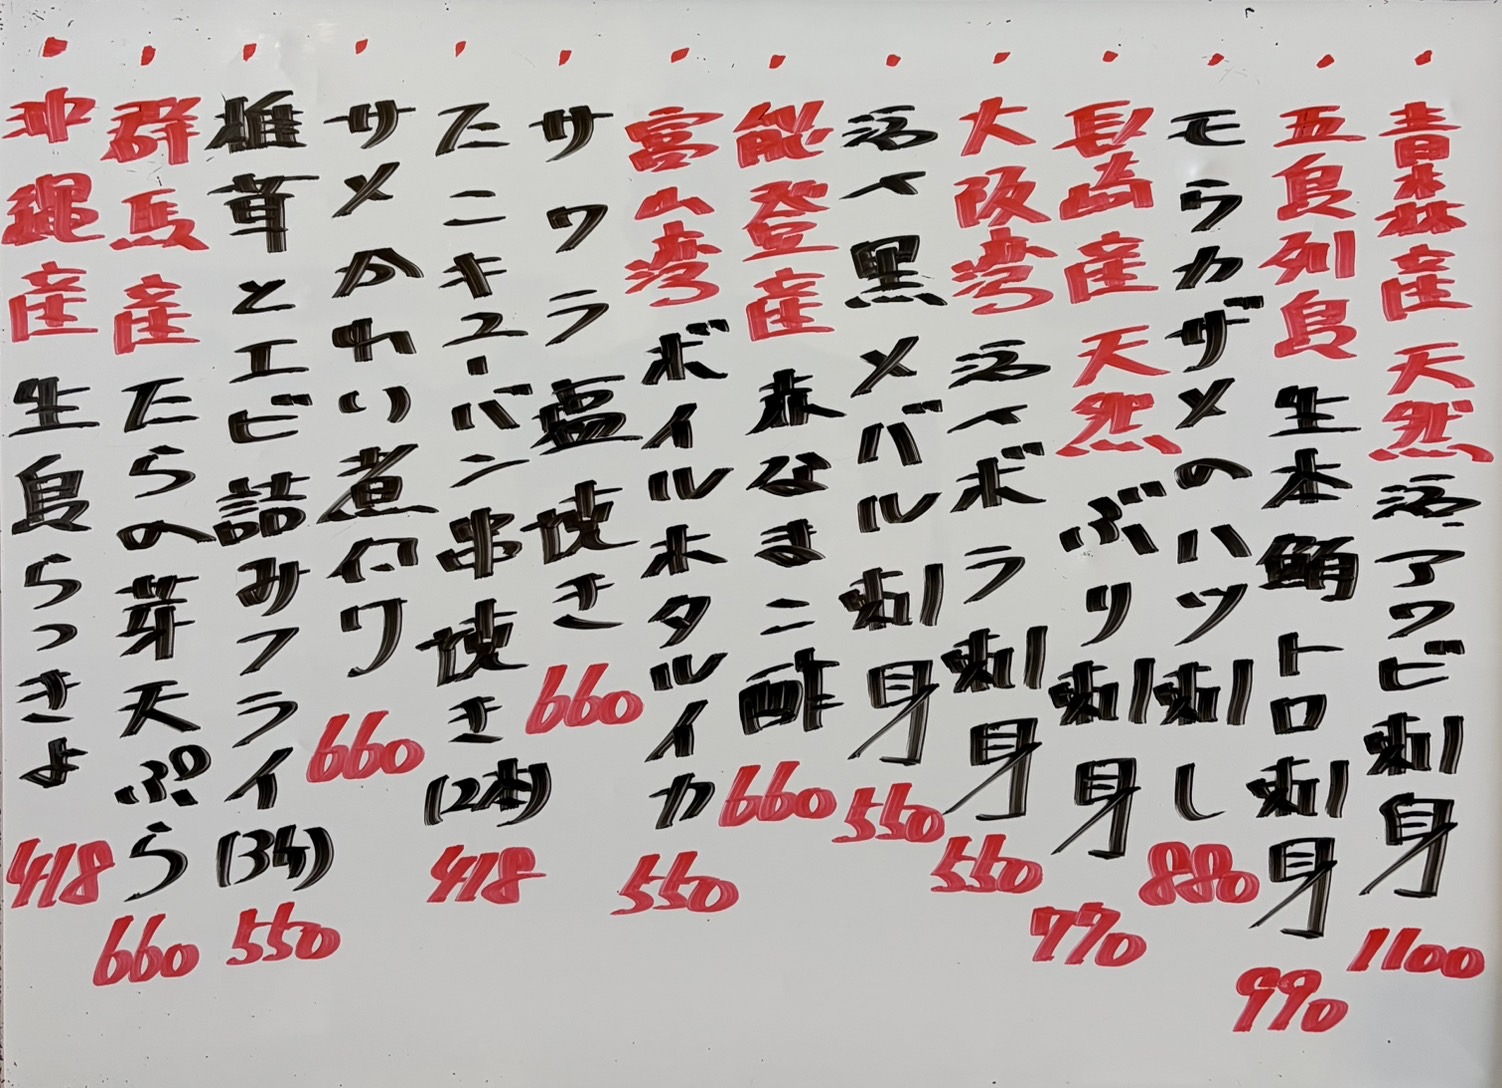 青森産天然活アワビ刺身 1100
五島列島生本鮪トロ刺身 990
モウカザメのハツ刺し 880
長崎産天然ぶり刺身 770
大阪湾活〆ボラ刺身 550
活〆黒メバル刺身 550
能登産赤なまこ酢 660
富山湾ボイルホタルイカ 550
サワラ塩焼き 660
たこキューバン串焼き(2本) 418
サメかわり煮付 660
椎茸とエビ詰みフライ(3ケ) 550
群馬産たらの芽天ぷら 660
沖縄産生島らっきょ 418